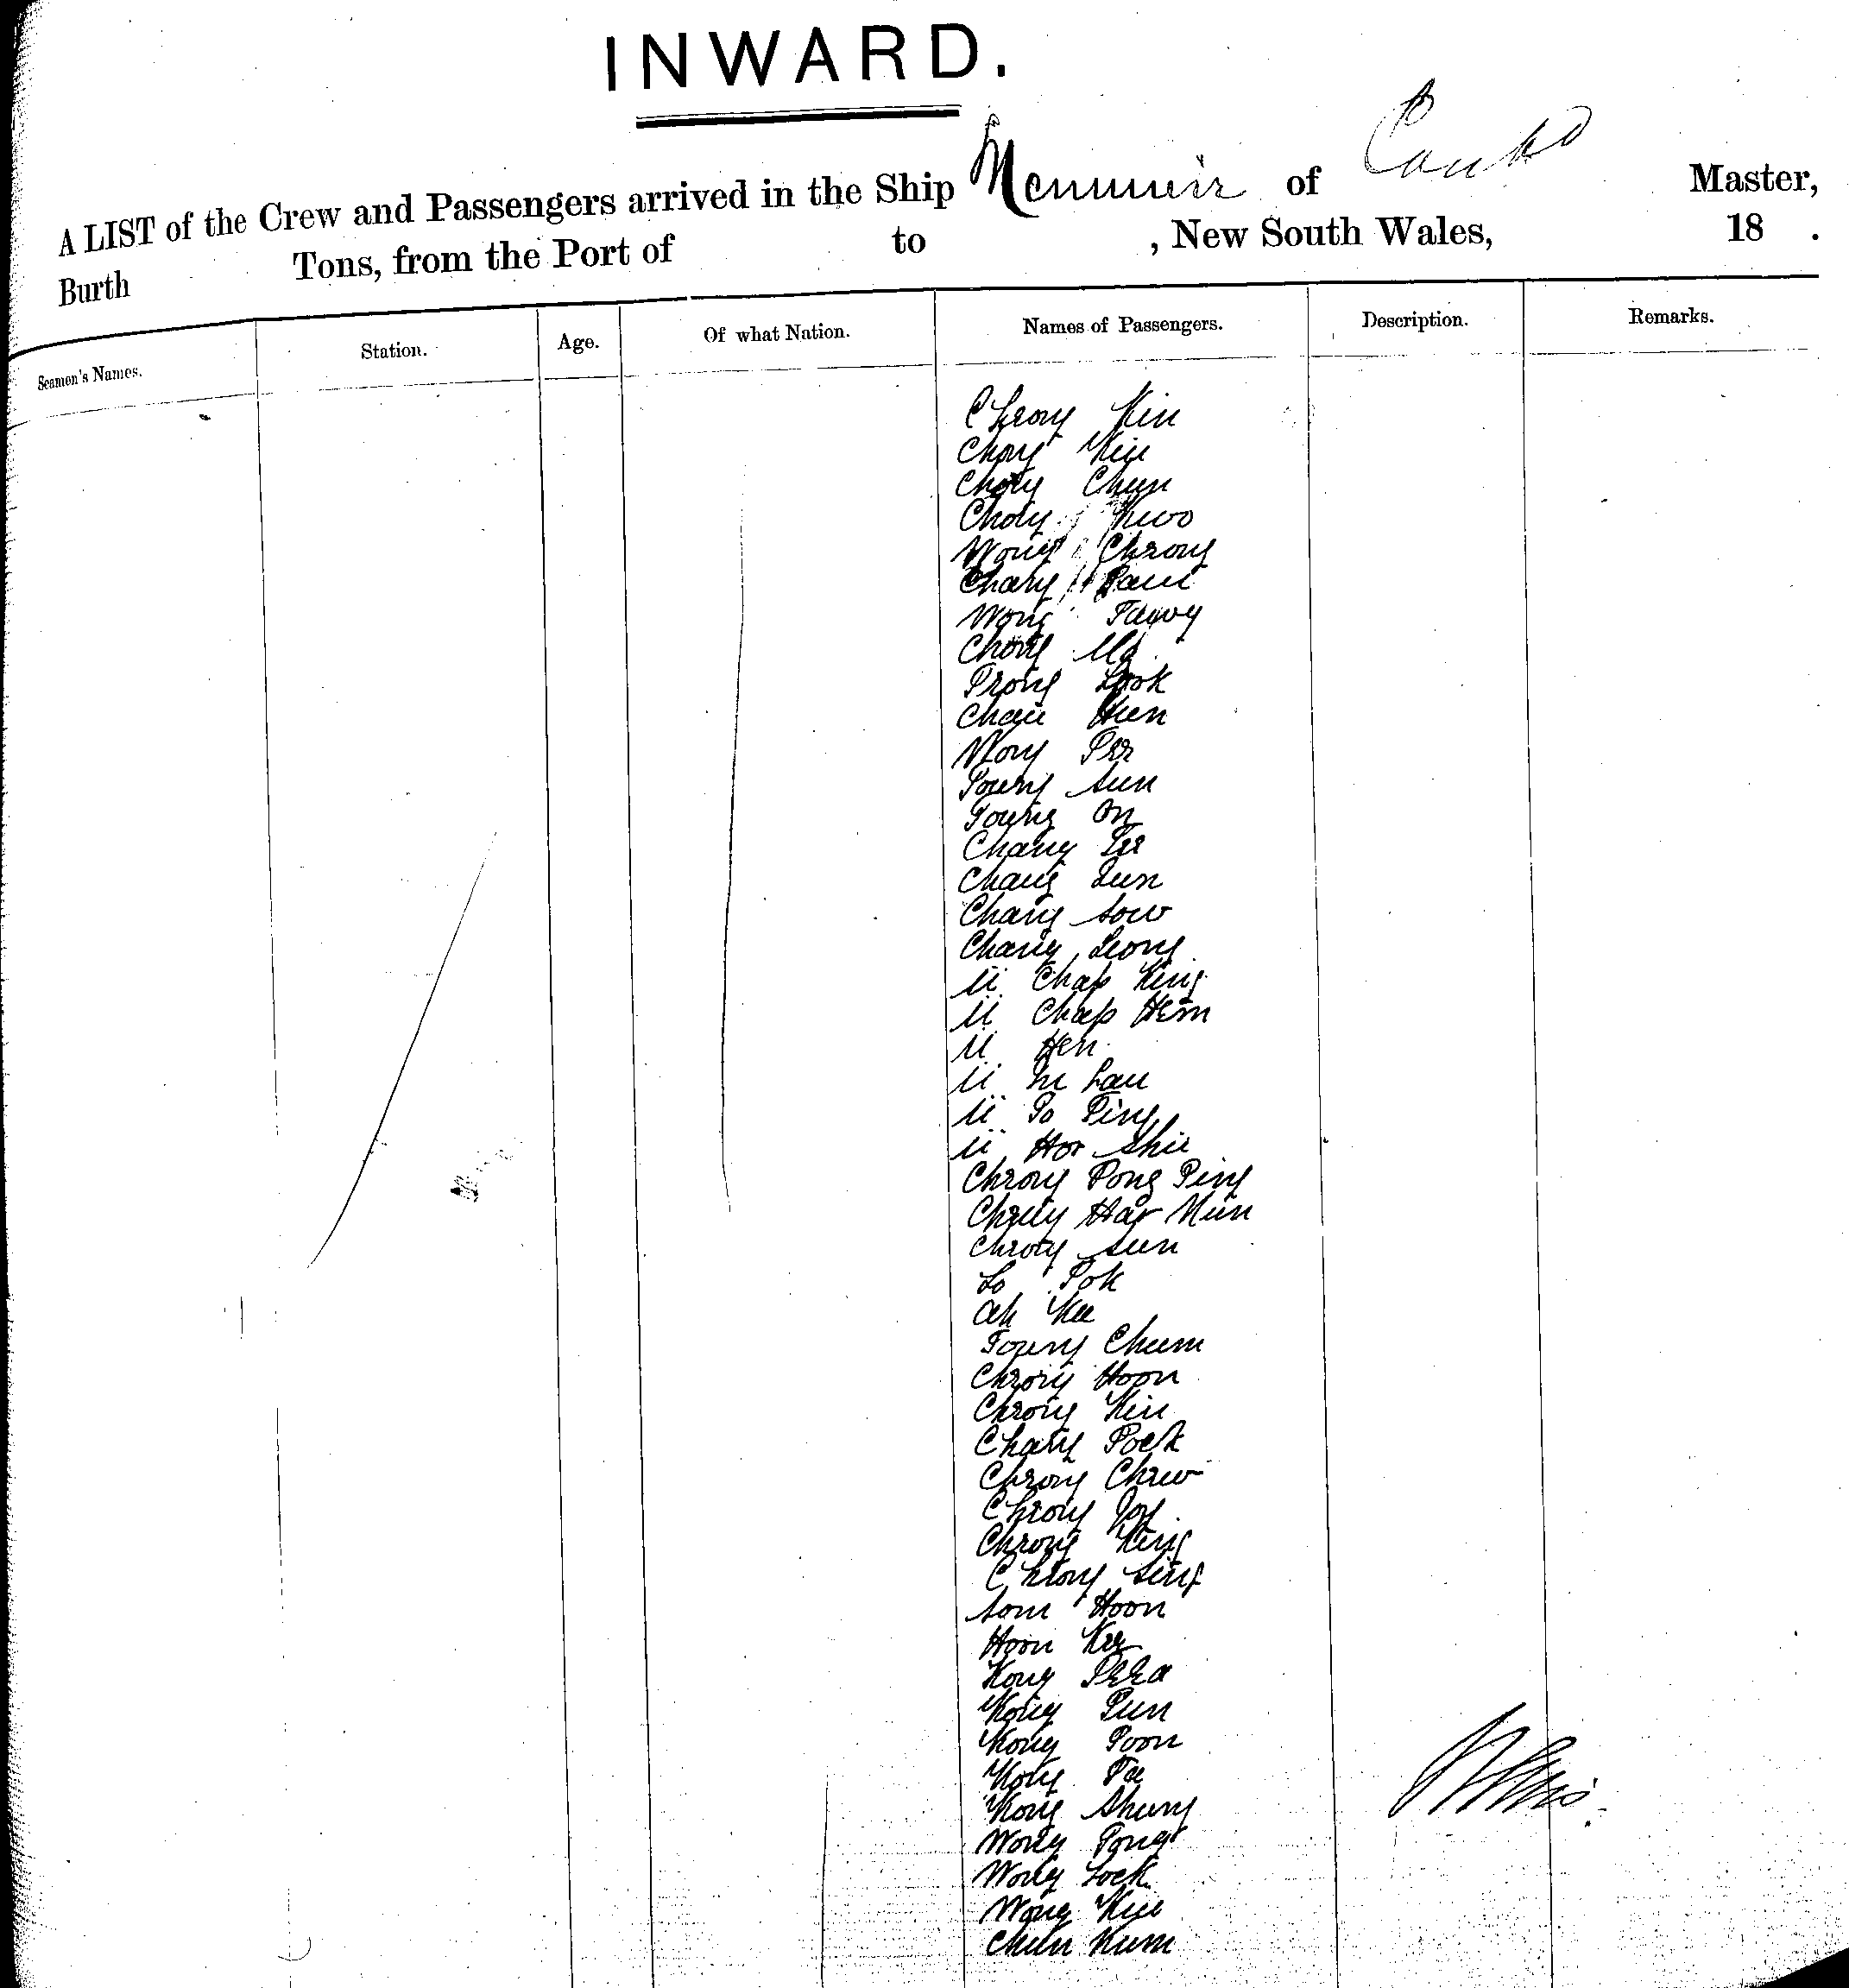 INWARD.
A LIST of the Crew and Passengers arrived in the Ship Menmuir of Master,
Burth Tons, from the Port of to , New South Wales, 18 .
Seamen's Names. Station. Age. Of what Nation. Names of Passengers. Description. Remarks.
Cheong Kin
Chong Kee
Chong Chun
Chong Kwo
Wong Cheong
Chang
Wong
Chong
Look
Hien
Wong Pee
Young Sun
Young On
Chang Lee
Chang Sun
Chang Sow
Chang Leong
Li Chap King
Li Chap Hem
Li Hen
Li Lau
Li Po Ping
Li Hor Shie
Cheong Pong Ping
Har Mun
Cheong Sun
Lo Pok
Ah Kee
Young Chum
Cheong Hoon
Cheong Kin
Chang Pock
Cheong Chew
Cheong Joy
Cheong King
Cheong Sing
Som Hoon
Hoon Kee
Kong
Kong Pun
Kong Poon
Kong
Kong Shung
Wong Pong
Wong Lock
Wong Kue
Chun Kum